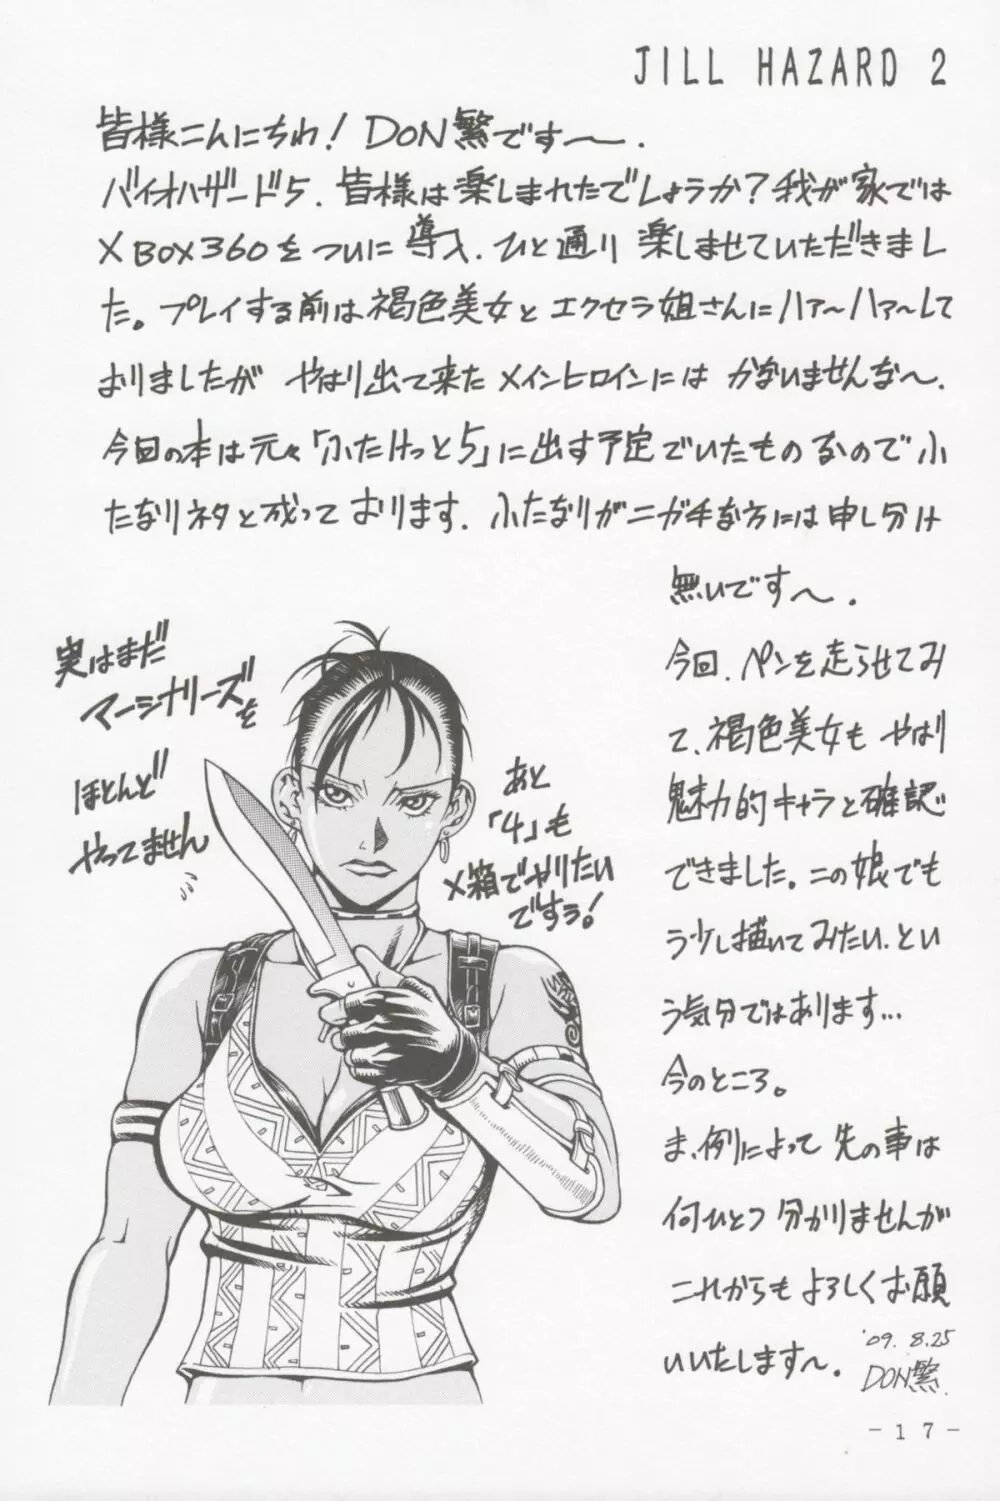 JILL HAZARD 2
皆様こんにちわ！DON繁です〜.
バイオハザード5.皆様は楽しまれたでしょうか？我が家では
XBOX360をついに導入.ひと通り楽しませていただきまし
た。プレイする前は褐色美女とエクセラ姐さんにハァ〜ハァ〜して
おりましたが やはり出て来たメインヒロインには かないませんな〜.
今回の本は元々「ふたけっと5」に出す予定でいたものなのでふ
たなりネタと成っております.ふたなりがニガ手な方には申し分け
無いです〜.
今回.ペンを走らせてみ
て、褐色美女も やはり
魅力的キャラと確認
できました。この娘でも
う少し描いてみたい.とい
う気分ではあります…
今のところ。
ま、例によって 先の事は
何ひとつ 分かりませんが
これからも よろしくお願
いいたします〜.
'09. 8.25
DON繁.
実はまだ
マーシナリーズを
ほとんど
やってません
あと
「4」も
X箱でやりたい
ですぅ！
-17-